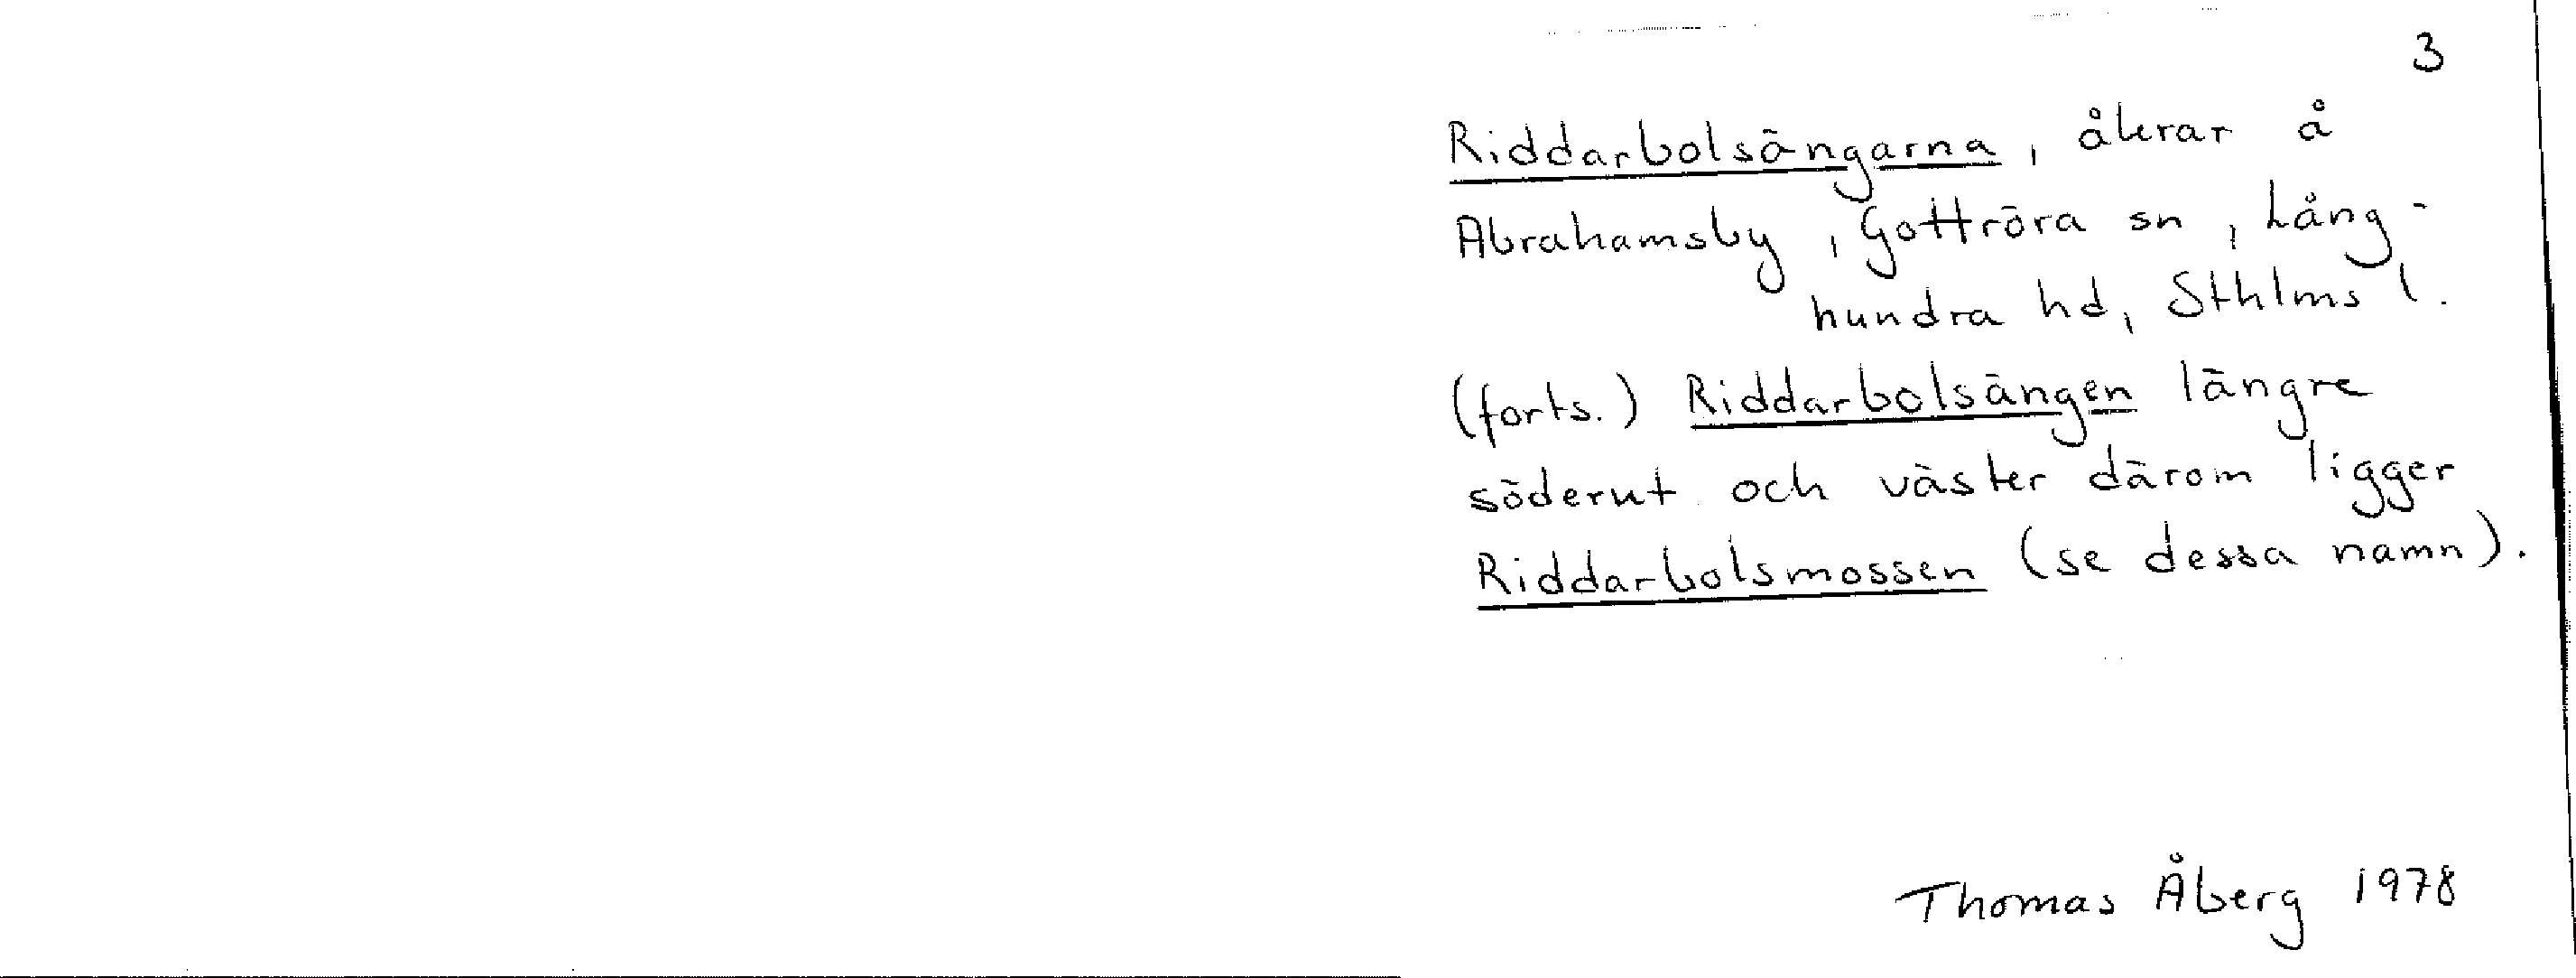 3
Riddarbolsängarna, åkrar å
Abrahamsby, Gottröra sn, Lång-
hundra hd, Sthlms l.
(forts.) Riddarbolsängen längre
söderut och väster därom ligger
Riddarbolsmossen (se dessa namn).
Thomas Åberg 1978